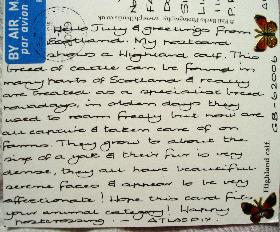 BY AIR MAIL
par avion
Hello July & greetings from
Scotland. My postcard
shows a Highland calf. This
breed of cattle can be found in
many parts of Scotland & really
are treated as a specialist breed
nowadays, in olden days they
used to roam freely but now are
all captive & taken care of on
farms. They grow to about the
size of a yak & their fur is very
dense, they all have beautiful
serene faces & appear to be very
affectionate! Hope this card fits
your animal category! Happy
postcrossing -
Highland calf.
GB 62006